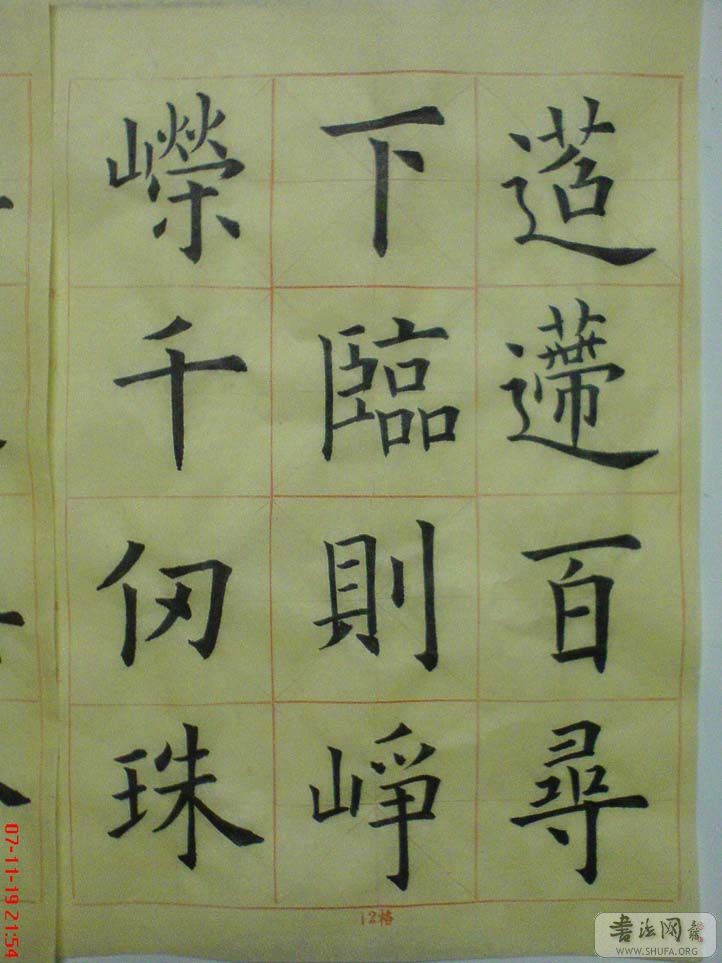 迢遰百尋
下臨則崢
嶸千仞珠
12格
07-11-19 21:54
书法网
WWW.SHUFA.ORG